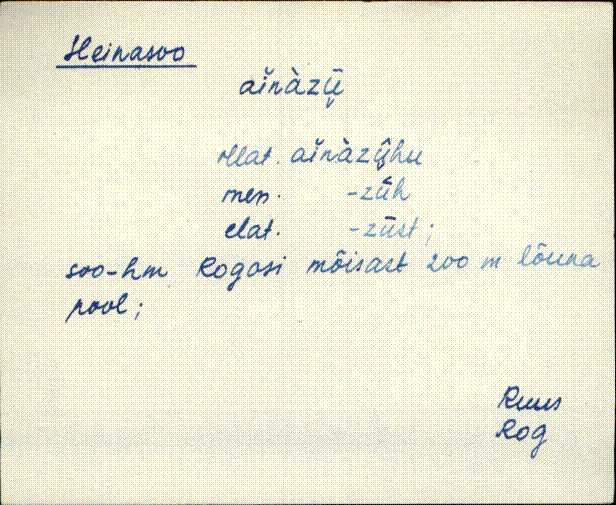 Heinasoo
aĭnàzū̬
illat. aĭnàzū̬hu
ines. -zūh
elat. -zūst;
soo-hm Rogosi mõisast 200 m lõuna
pool;
Ruus
Rog